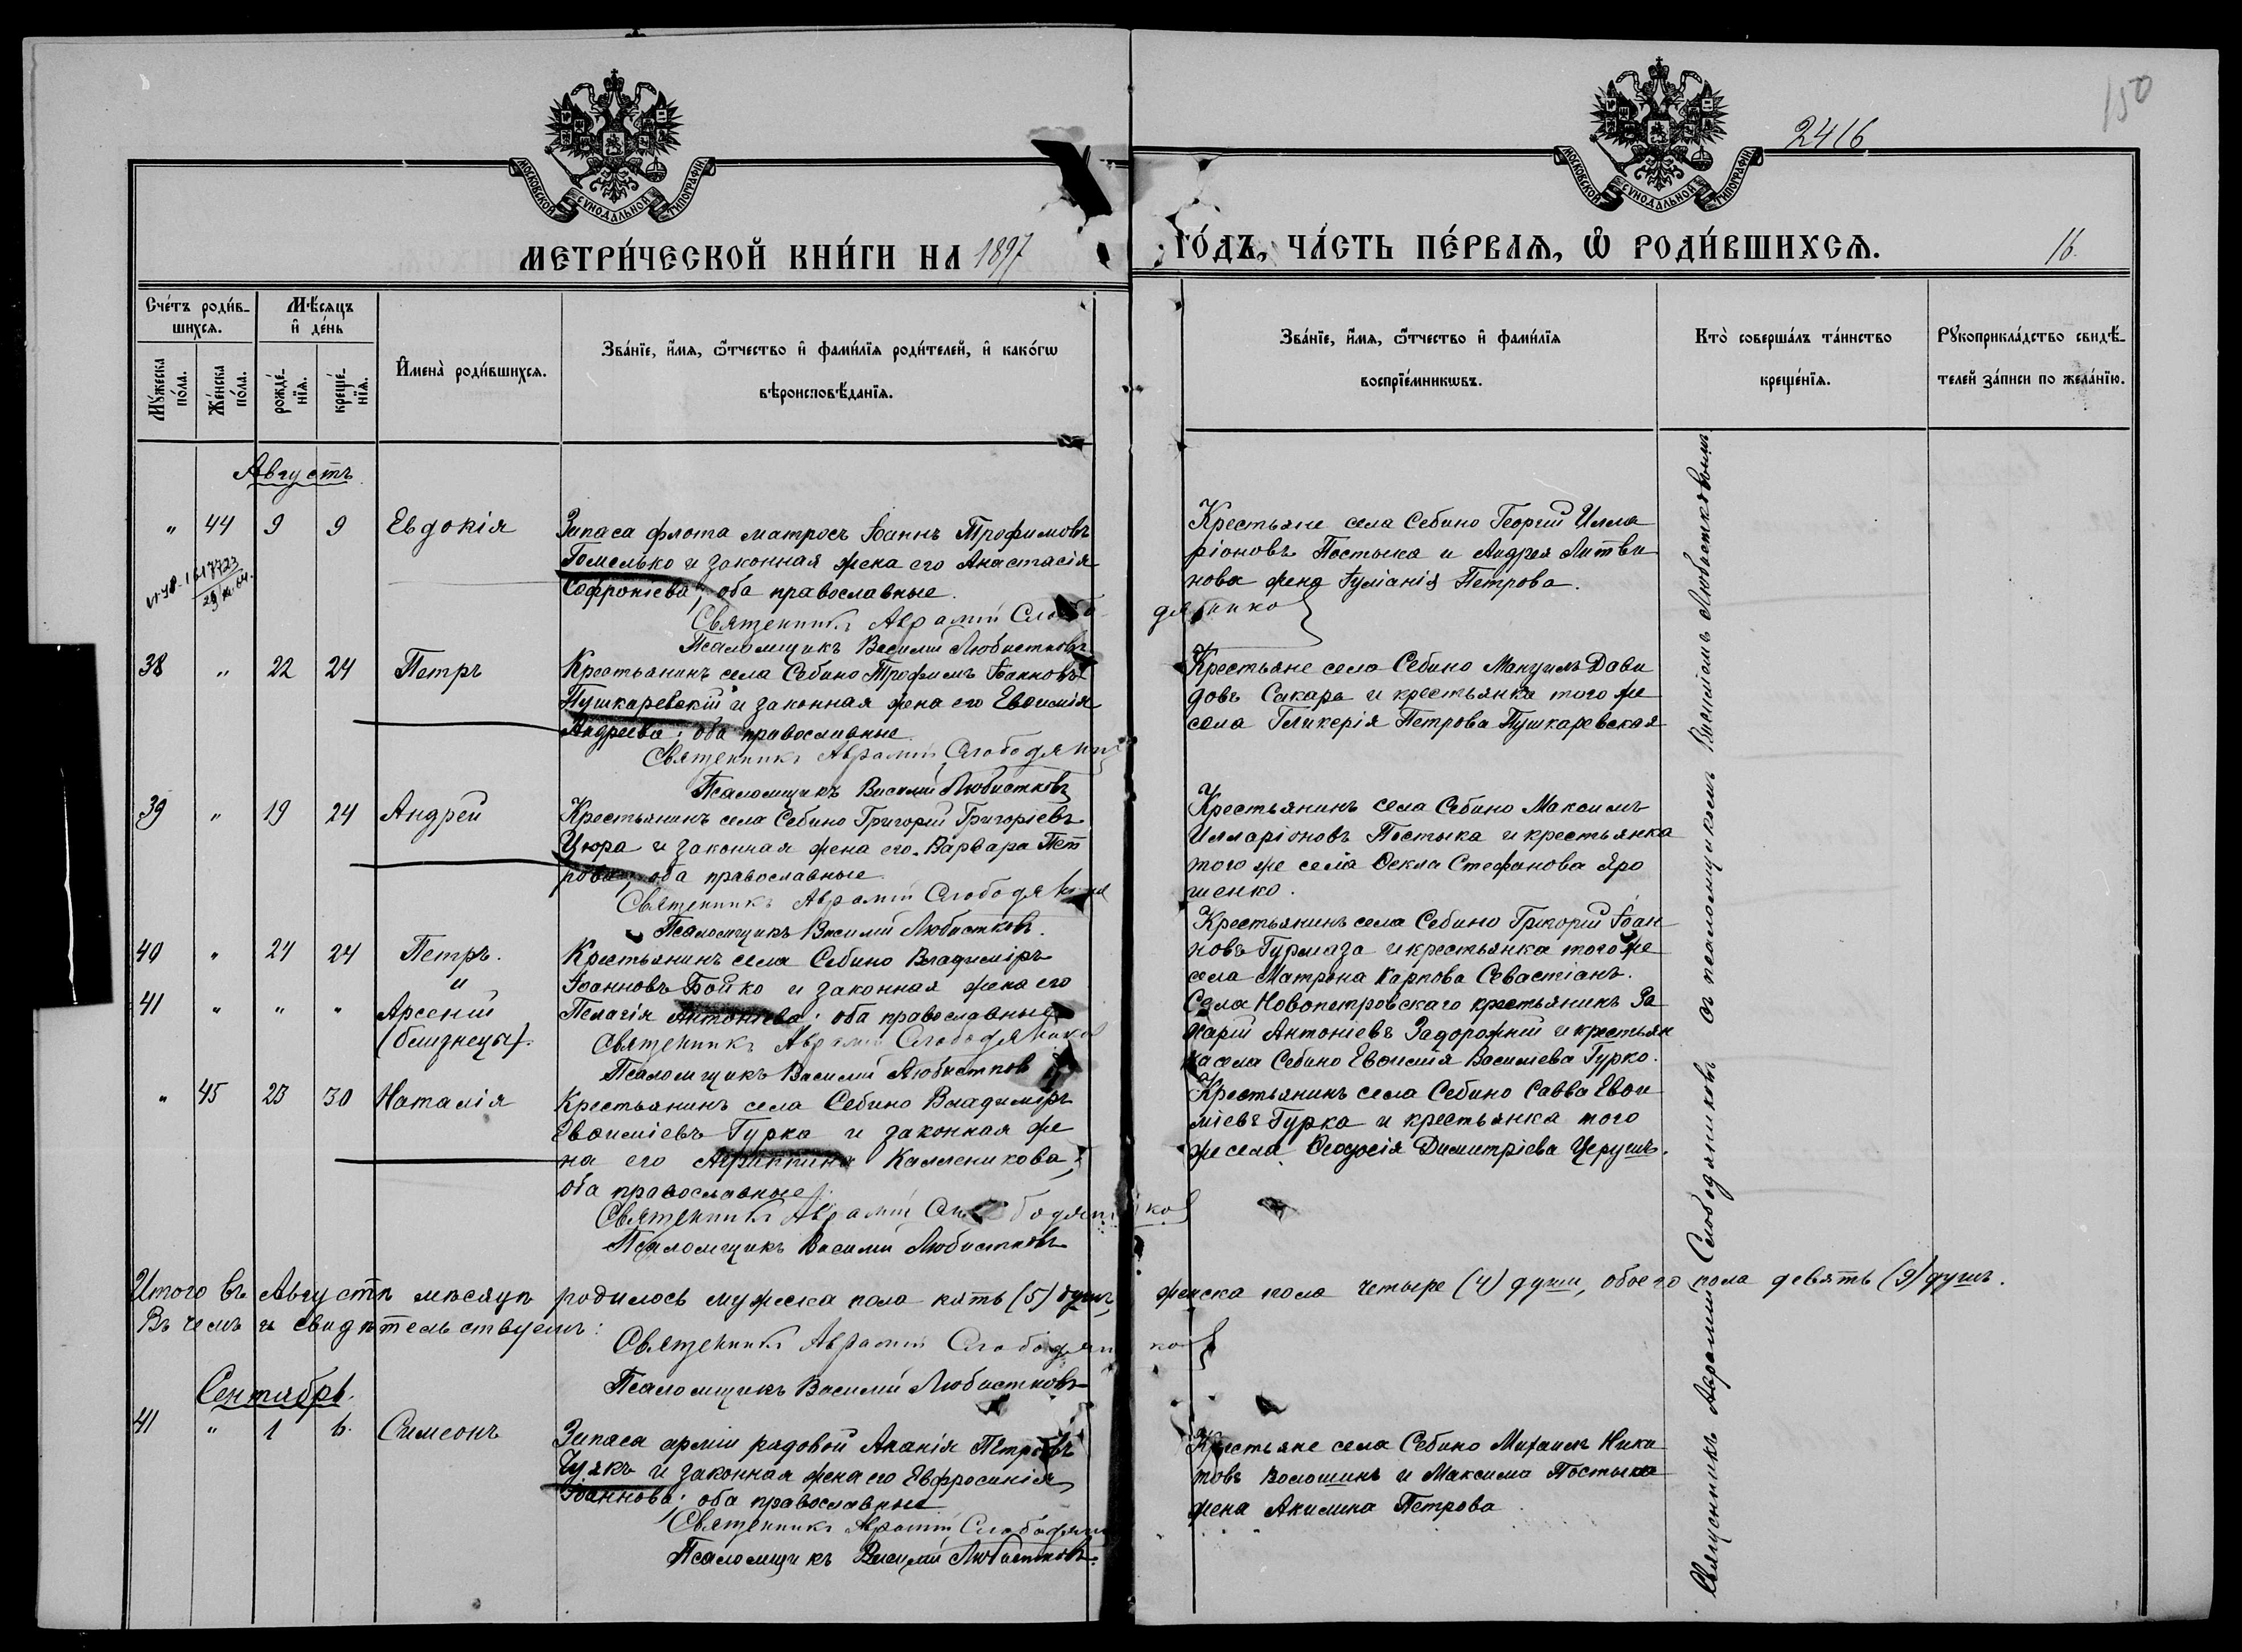 150
2416
МОСКОВСКОЙ СѴНОДАЛЬНОЙ ТИПОГРАФІИ
МОСКОВСКОЙ СѴНОДАЛЬНОЙ ТИПОГРАФІИ
МЕТРИ́ЧЕСКОЙ КНИ́ГИ НА 1897 ГО́ДЪ, ЧА́СТЬ ПЕ́РВАѦ, Ѡ҆ РОДИ́ВШИХСѦ. 16.
Сче́тъ роди́в-
шихсѧ.
Мѣ́сѧцъ
и҆ де́нь
Мꙋ́жеска
по́ла.
Же́нска
по́ла.
рожде́-
нїѧ.
креще́-
нїѧ.
И҆мена̀ роди́вшихсѧ.
Зва́нїе, и҆́мѧ, ѻ҆́тчество и҆ фамі́лїѧ роди́телей, и҆ како́гѡ
вѣроисповѣ́данїѧ.
Зва́нїе, и҆́мѧ, ѻ҆́тчество и҆ фамі́лїѧ
воспрїе́мникѡвъ.
Кто̀ соверша́лъ та́инство
креще́нїѧ.
Рꙋкоприкла́дство свидѣ́-
телей за́писи по жела́нїю.
Августъ
" 44 9 9 Евдокія
Запаса флота матросъ Іоаннъ Трофимовъ
Гомелько и законная жена его Анастасія
Софроніева; оба православные.
Священникъ Аврамій Слободяников
Псаломщикъ Василій Любистковъ
Крестьяне села Себино Георгій Илла
ріоновъ Постыка и Андрея Литви
нова жена Іуліанія Петрова.
38 " 22 24 Петръ
Крестьянинъ села Себино Трофимъ Іоанновъ
Пушкаревскій и законная жена его Евѳимія
Андреева; оба православные
Священникъ Аврамій Слободяник
Псаломщикъ Василій Любистковъ
Крестьяне села Себино Мануилъ Дави
довъ Сакара и крестьянка того же
села Гликерія Петрова Пушкаревская
39 " 19 24 Андрей
Крестьянинъ села Себино Григорій Григоріевъ
Цюра и законная жена его Варвара Пет
рова; оба православные
Священникъ Аврамій Слободяник
Псаломщикъ Василій Любистковъ.
Крестьянинъ села Себино Максимъ
Илларіоновъ Постыка и крестьянка
того же села Ѳекла Стефанова Яро
шенко.
40 " 24 24 Петръ.
и
41 " " " Арсеній
(близнецы).
Крестьянинъ села Себино Владиміръ
Іоанновъ Бойко и законная жена его
Пелагія Антоніева; оба православные
Священникъ Аврамій Слободяников
Псаломщикъ Василій Любистков
Крестьянинъ села Себино Григорій Іоан
новъ Гурмаза и крестьянка того же
села Матрона Карпова Севастіанъ.
Села Новопетровскаго крестьянинъ За
харій Антоніевъ Задорожній и крестьян
ка села Себино Евѳимія Василіева Гурко.
" 45 23 30 Наталія
Крестьянинъ села Себино Владиміръ
Евѳиміевъ Гурка и законная же
на его Агриппина Каллиникова;
оба православные.
Священникъ Аврамій Слободяников
Псаломщикъ Василій Любистковъ
Крестьянинъ села Себино Савва Евѳи
міевъ Гурка и крестьянка того
же села Ѳеодосія Димитріева Церушъ.
Итого въ Августѣ мѣсяцѣ родилось мужеска пола пять (5) душъ, женска пола четыре (4) души, обоего пола девять (9) душъ.
Въ чемъ и свидѣтельствуемъ:
Священникъ Аврамій Слободяников
Псаломщикъ Василій Любистковъ
Сентябрь.
41 " 1 6. Симеонъ
Запаса арміи рядовой Ананія Петровъ
и законная жена его Евфросинія
Іоаннова; оба православные
Священникъ Аврамій Слободяник
Псаломщикъ Василій Любистковъ.
Крестьяне села Себино Михаилъ Ники
товъ Волошинъ и Максима Постыка
жена Акилина Петрова
Священникъ Аврамій Слободяниковъ съ псаломщикомъ Василіемъ Любистковымъ